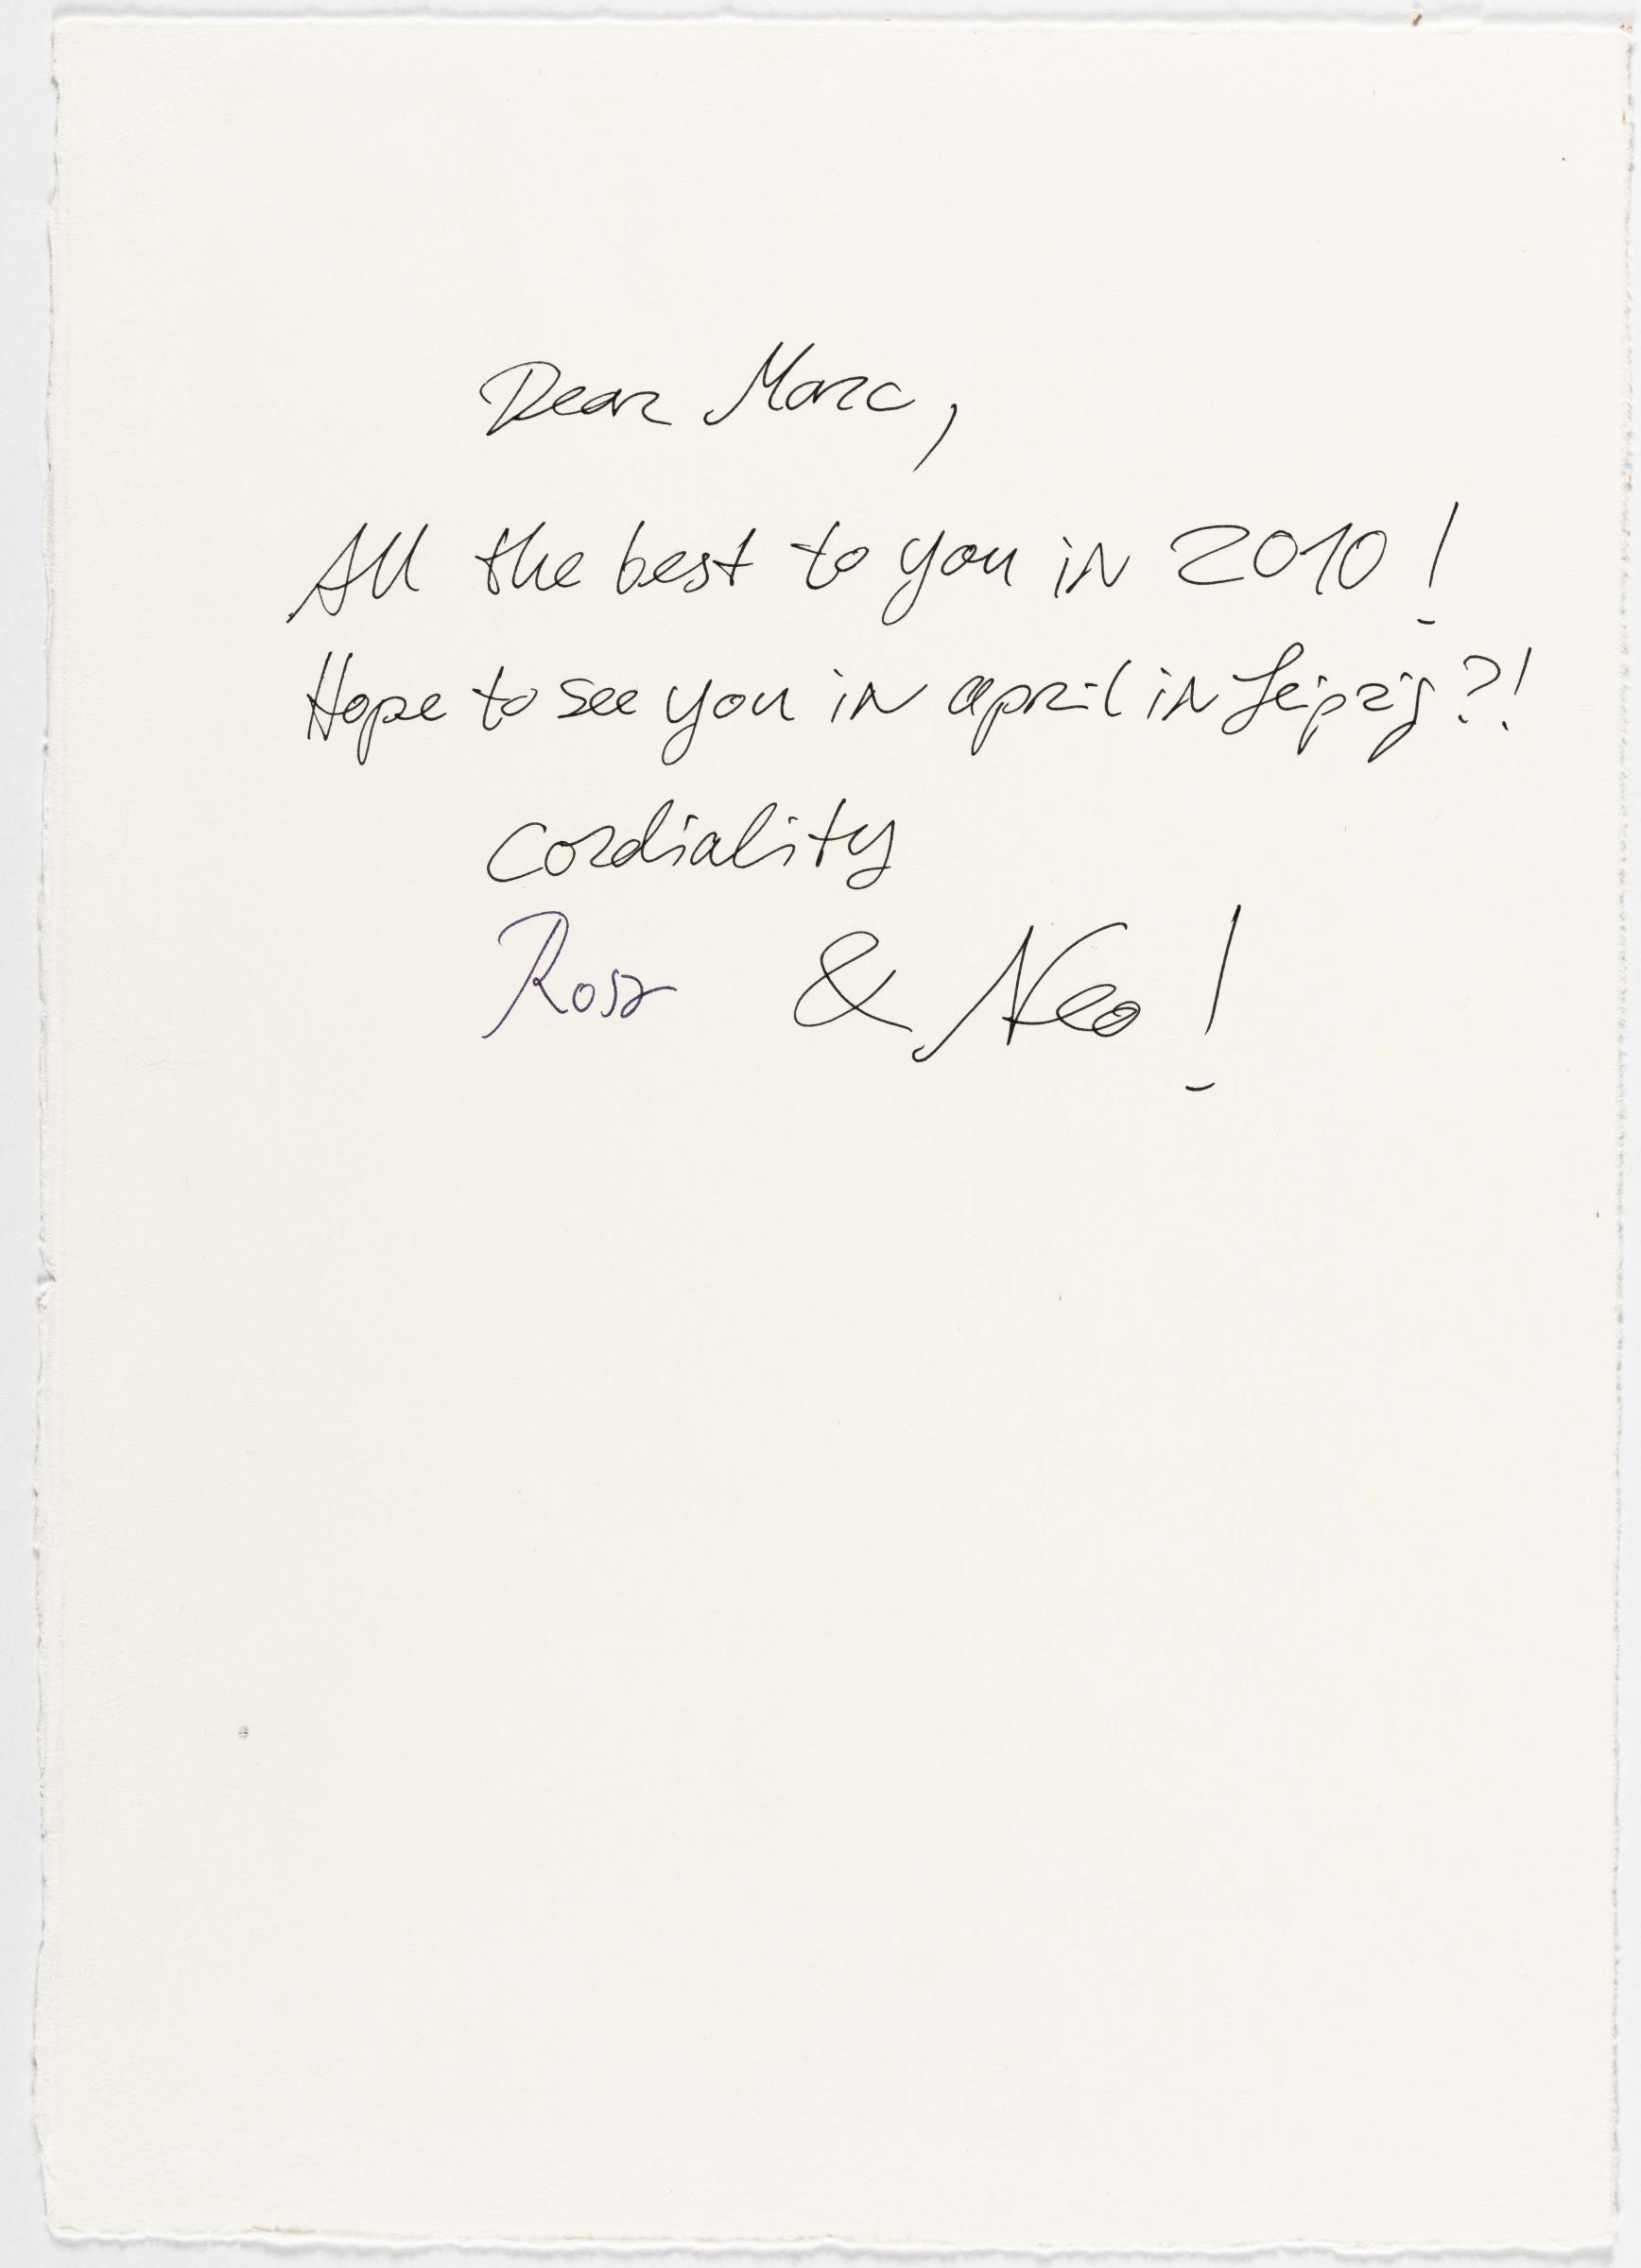 Dear Marc,
All the best to you in 2010!
Hope to see you in april in Leipzig?!
cordiality
Rosa & Neo!